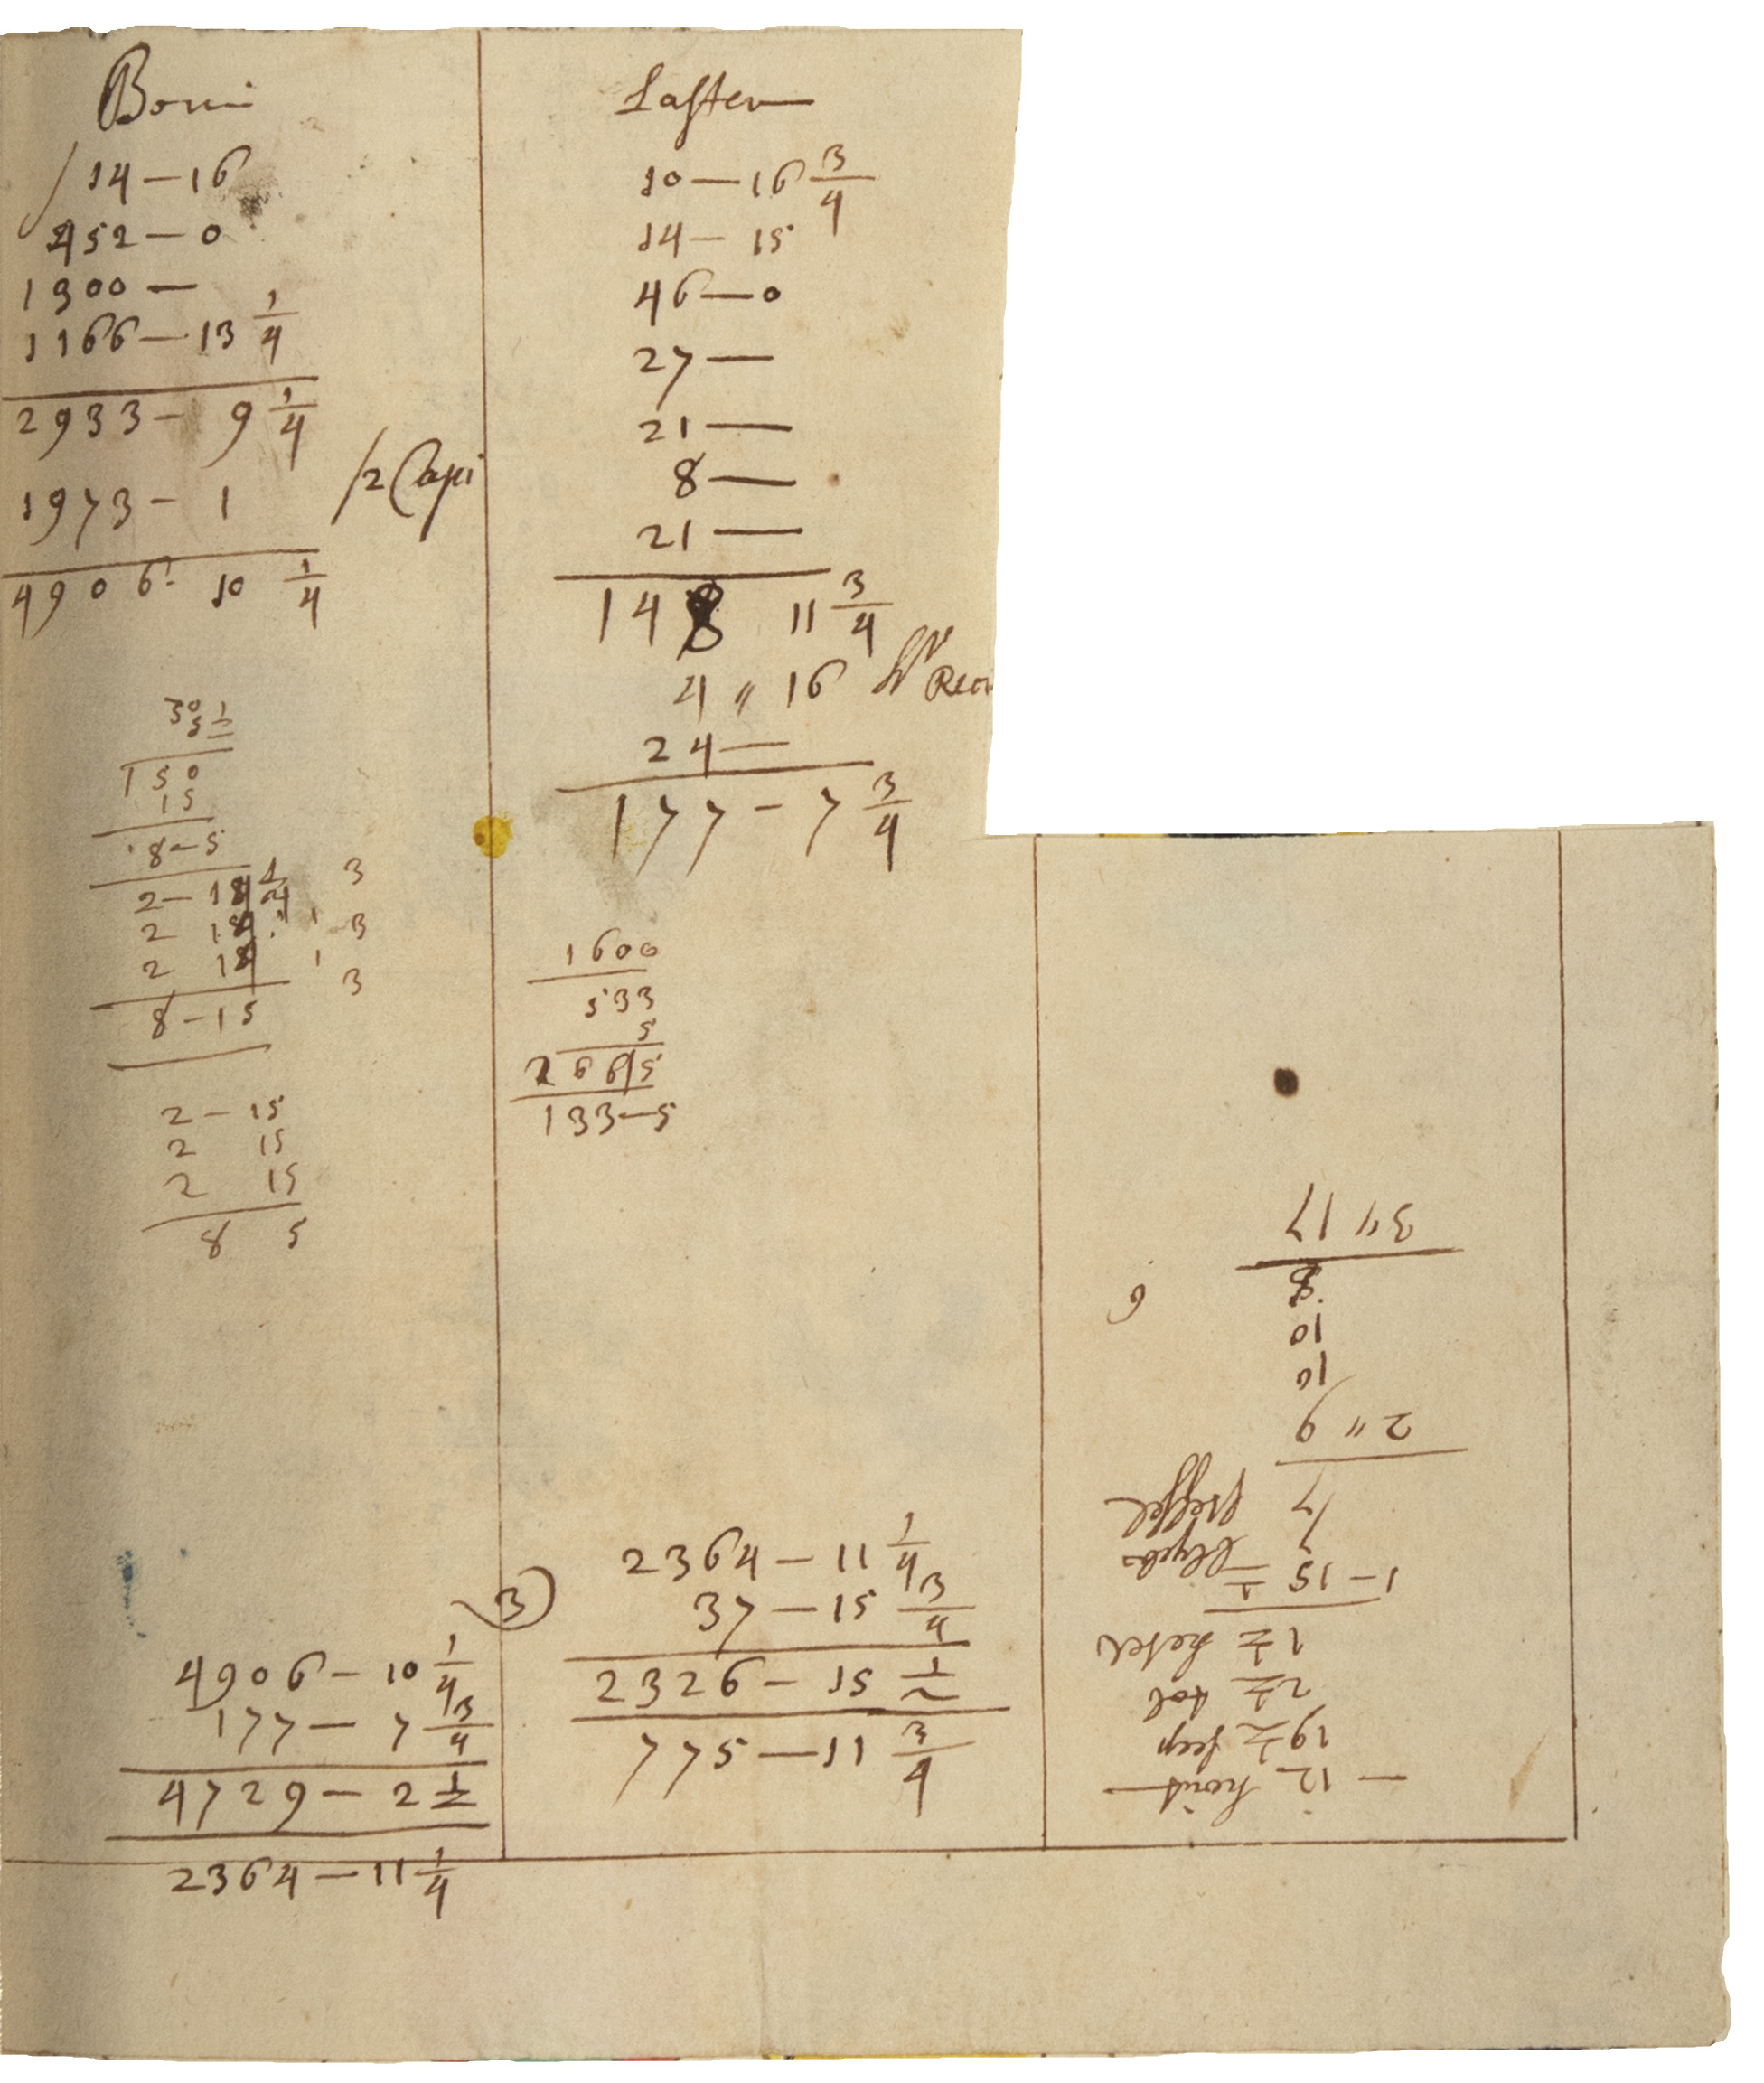 Boni
14 — 16
452 — 0
1300 —
1166 — 13 1/4
2933 — 9 1/4
1973 — 1 /2 Capi
4906 — 10 1/4
30
5 1/2
150
15
8 — 5
2 — 18 1/4 3
2 18 1 3
2 18 1
3
8 — 15
2 — 15
2 15
2 15
8 5
4906 — 10 1/4
177 — 7 3/4
4729 — 2 1/2
2364 — 11 1/4
Lasten
10 — 16 3/4
14 — 15
46 — 0
27 —
21 —
8 —
21 —
148 11 3/4
4 " 16
24 —
177 — 7 3/4
1600
533
5
2665
133 — 5
2364 — 11 1/4
3
37 — 15 3/4
2326 — 15 1/2
775 — 11 3/4
— 12 hout —
19 1/2 seep
2 1/2 tol
1 1/2 ketel
1 — 15 1/2
7
2 " 9
10
10
8 6
3 " 17